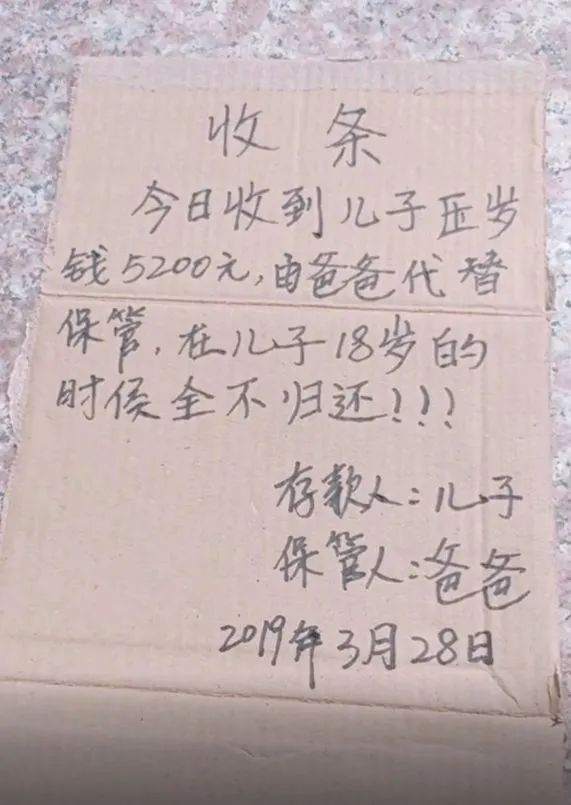 收 条
今日收到儿子压岁
钱5200元,由爸爸代替
保管,在儿子18岁的
时侯全不归还!!!
存款人:儿子
保管人:爸爸
2019年3月28日